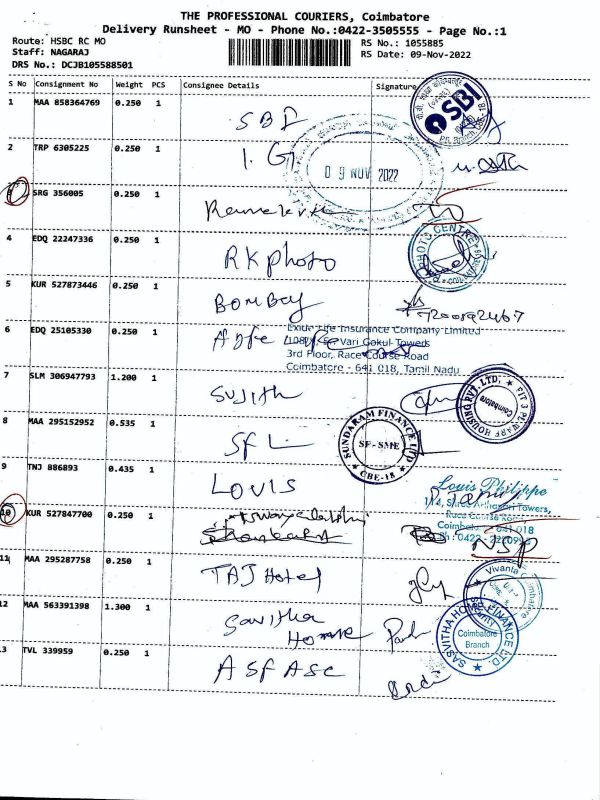 THE PROFESSIONAL COURIERS, Coimbatore
Delivery Runsheet - MO - Phone No.:0422-3505555 - Page No.:1
Route: HSBC RC MO
Staff: NAGARAJ
DRS No.: DCJB105588501
RS No.: 1055885
RS Date: 09-Nov-2022
S No Consignment No Weight PCS Consignee Details Signature
1 MAA 858364769 0.250 1 SBI
SBI
2 TRP 6305225 0.250 1 I.G
09 NOV 2022
3 SRG 356005 0.250 1
4 EDQ 22247336 0.250 1 RK photo
PHOTO CENTRE
5 KUR 527873446 0.250 1 BOMBAY
6 EDQ 25105330 0.250 1
Exide Life Insurance Company Limited
Vari Gokul Towers
3rd Floor, Race Course Road
Coimbatore - 641 018, Tamil Nadu
7 SLM 306947793 1.200 1 Sujith
HOUSING PVT. LTD.
Coimbatore
8 MAA 295152952 0.535 1 SFL
SUNDARAM FINANCE LTD
SF-SME
CBE-18
9 TNJ 886893 0.435 1 LOUIS
Louis Philippe
Towers,
Race Course Road
Coimbatore 641 018
10 KUR 527847700 0.250 1
NSP
11 MAA 295287758 0.250 1 TAJ Hotel
Vivanta Coimbatore
12 MAA 563391398 1.300 1 Savitha
Home
SASVITHA HOME FINANCE LTD.
Coimbatore
Branch
13 TVL 339959 0.250 1 ASFASC